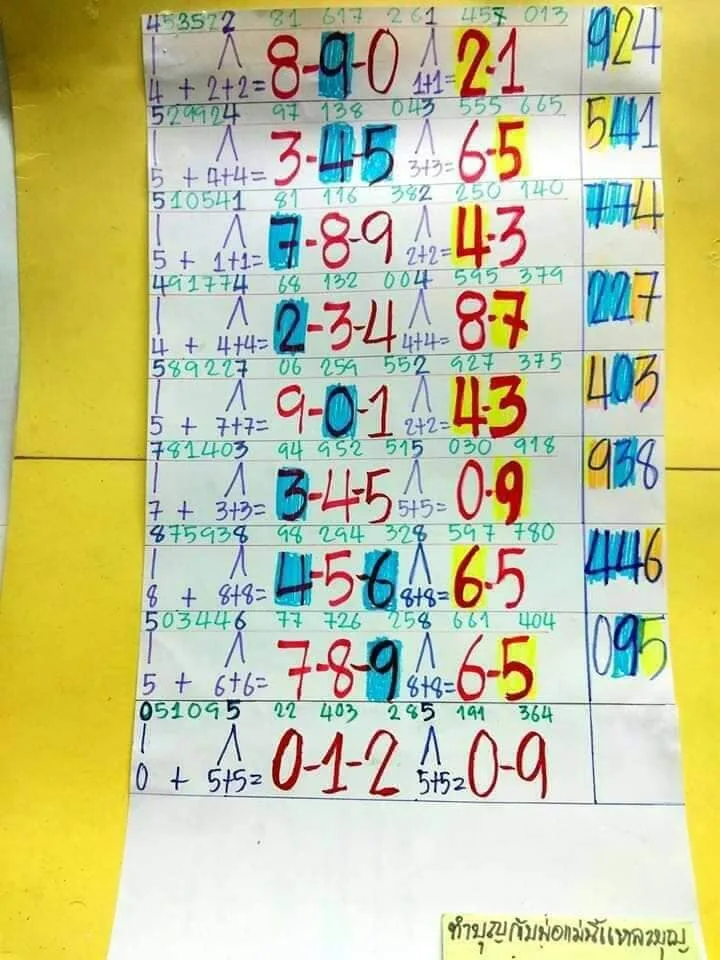 453522 81 617 261 457 013
4 + 2+2= 8-9-0 1+1= 2-1 924
529924 97 138 043 555 665
5 + 4+4= 3-4-5 3+3= 6-5 541
510541 81 116 382 250 140
5 + 1+1= 7-8-9 2+2= 4-3 774
491774 68 132 004 595 379
4 + 4+4= 2-3-4 4+4= 8-7 227
589227 06 259 552 927 375
5 + 7+7= 9-0-1 2+2= 4-3 403
781403 94 952 515 030 918
7 + 3+3= 3-4-5 5+5= 0-9 938
875938 98 294 328 597 780
8 + 8+8= 4-5-6 8+8= 6-5 446
503446 77 726 258 661 404
5 + 6+6= 7-8-9 8+8= 6-5 095
051095 22 403 285 191 364
0 + 5+5= 0-1-2 5+5= 0-9
ทำบุญกับพ่อแม่นี้แหละบุญ